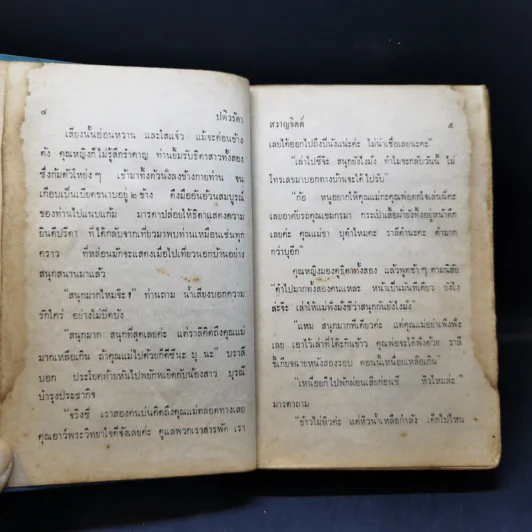 ๔ ปติวรัดา
เสียงนั้นอ่อนหวาน และใสแจ๋ว แม้จะค่อนข้าง
ดัง คุณหญิงก็ไม่รู้สึกรำคาญ ท่านยิ้มรับธิดาสาวทั้งสอง
ซึ่งก้มตัวไหย่ง ๆ เข้ามาทั้งตัวนั่งลงข้างกายท่าน จน
เกือบเป็นเบียดขนาบอยู่ ๒ ข้าง ดึงมืออันอ้วนสมบูรณ์
ของท่านไปแนบแก้ม มารดาปล่อยให้ธิดาแสดงความ
ยินดีปรีดา ที่ได้กลับจากเที่ยวมาพบท่านเหมือนเช่นทุก
คราว ที่หล่อนมักจะแสดงเมื่อไปเที่ยวนอกบ้านอย่าง
สนุกสนานมาแล้ว
"สนุกมากไหมจ๊ะ?" ท่านถาม น้ำเสียงบอกความ
รักใคร่ อย่างไม่ปิดบัง
"สนุกมาก สนุกที่สุดเลยค่ะ แต่ราลีคิดถึงคุณแม่
มากเหลือเกิน ถ้าคุณแม่ไปด้วยก็ดีซีนะ บุ นะ" บราลี
บอก ประโยคท้ายหันไปพยักพเยิดกับน้องสาว บุรณี
บำรุงประชากิจ
"จริงซี เราสองคนบ่นคิดถึงคุณแม่ตลอดทางเลย
คุณอาว์พระวิทยาใจดีจังเลยค่ะ ดูแลพวกเราสารพัด เรา
สราญจิตต์ ๕
เลยได้ออกไปถึงบึ้งนั่งเน่ะค่ะ ไม่น่าเชื่อเลยนะคะ"
"เล่าไปซีจ๊ะ สนุกยังไงมั่ง ทำไมจะกลับวันนี้ ไม่
โทรเลขมาบอกทางบ้านจะได้ไปรับ"
"ก้อ หนูอยากให้คุณแม่กะคุณพ่อตกใจเล่นนี่คะ
เลยอาศัยรถคุณเขมกรมา กระเป๋าเสื้อผ้ายังทิ้งอยู่หน้าตึก
เลยค่ะ คุณแม่ขา บุดำไหมคะ ราลีดำนะคะ ดำมาก
กว่าบุอีก"
คุณหญิงมองดูธิดาทั้งสอง แล้วพูดช้า ๆ ตามนิสัย
"ดำไปมากทั้งสองคนแหละ หน้าเป็นมันทีเดียว ยังไง
ล่ะจ๊ะ เล่าให้แม่ฟังมั่งซีว่าสนุกกันยังไงมั่ง"
"แหม สนุกมากทีเดียวค่ะ แต่คุณแม่อย่าเพิ่งฟัง
เลย เอาไว้เล่าที่โต๊ะกินข้าว คุณพ่อจะได้ฟังด้วย ราลี
ขี้เกียจฉายหนังสองรอบ ตอนนี้เหนื่อยเหลือเกิน"
"เหนื่อยก็ไปพักผ่อนเสียก่อนซี หิวไหมล่ะ"
มารดาถาม
"ข้าวไม่หิวค่ะ แต่หิวน้ำเหลือกำลัง เด็กไปไหน